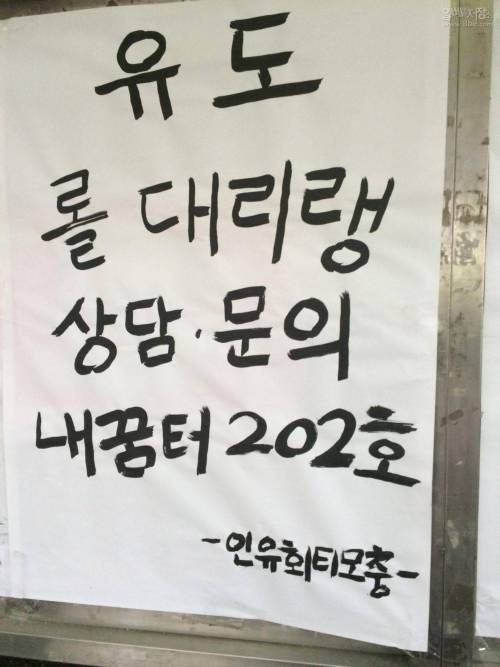 유도
롤 대리랭
상담·문의
내꿈터 202호
-인유회티모충-